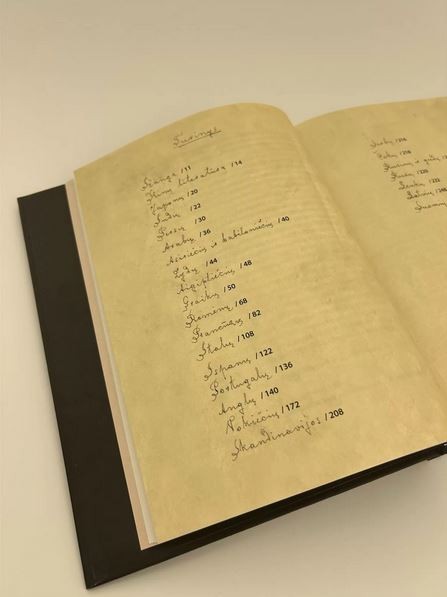 Turinys
Įžanga / 11
Kinų literatūra / 14
Japonų / 20
Indų / 22
Persų / 30
Arabų / 36
Asiriečių ir babiloniečių / 40
Žydų / 44
Aigiptiečių / 48
Graikų / 50
Romėnų / 68
Prancūzų / 82
Italų / 108
Ispanų / 122
Portugalų / 136
Anglų / 140
Vokiečių / 172
Skandinavijos / 208